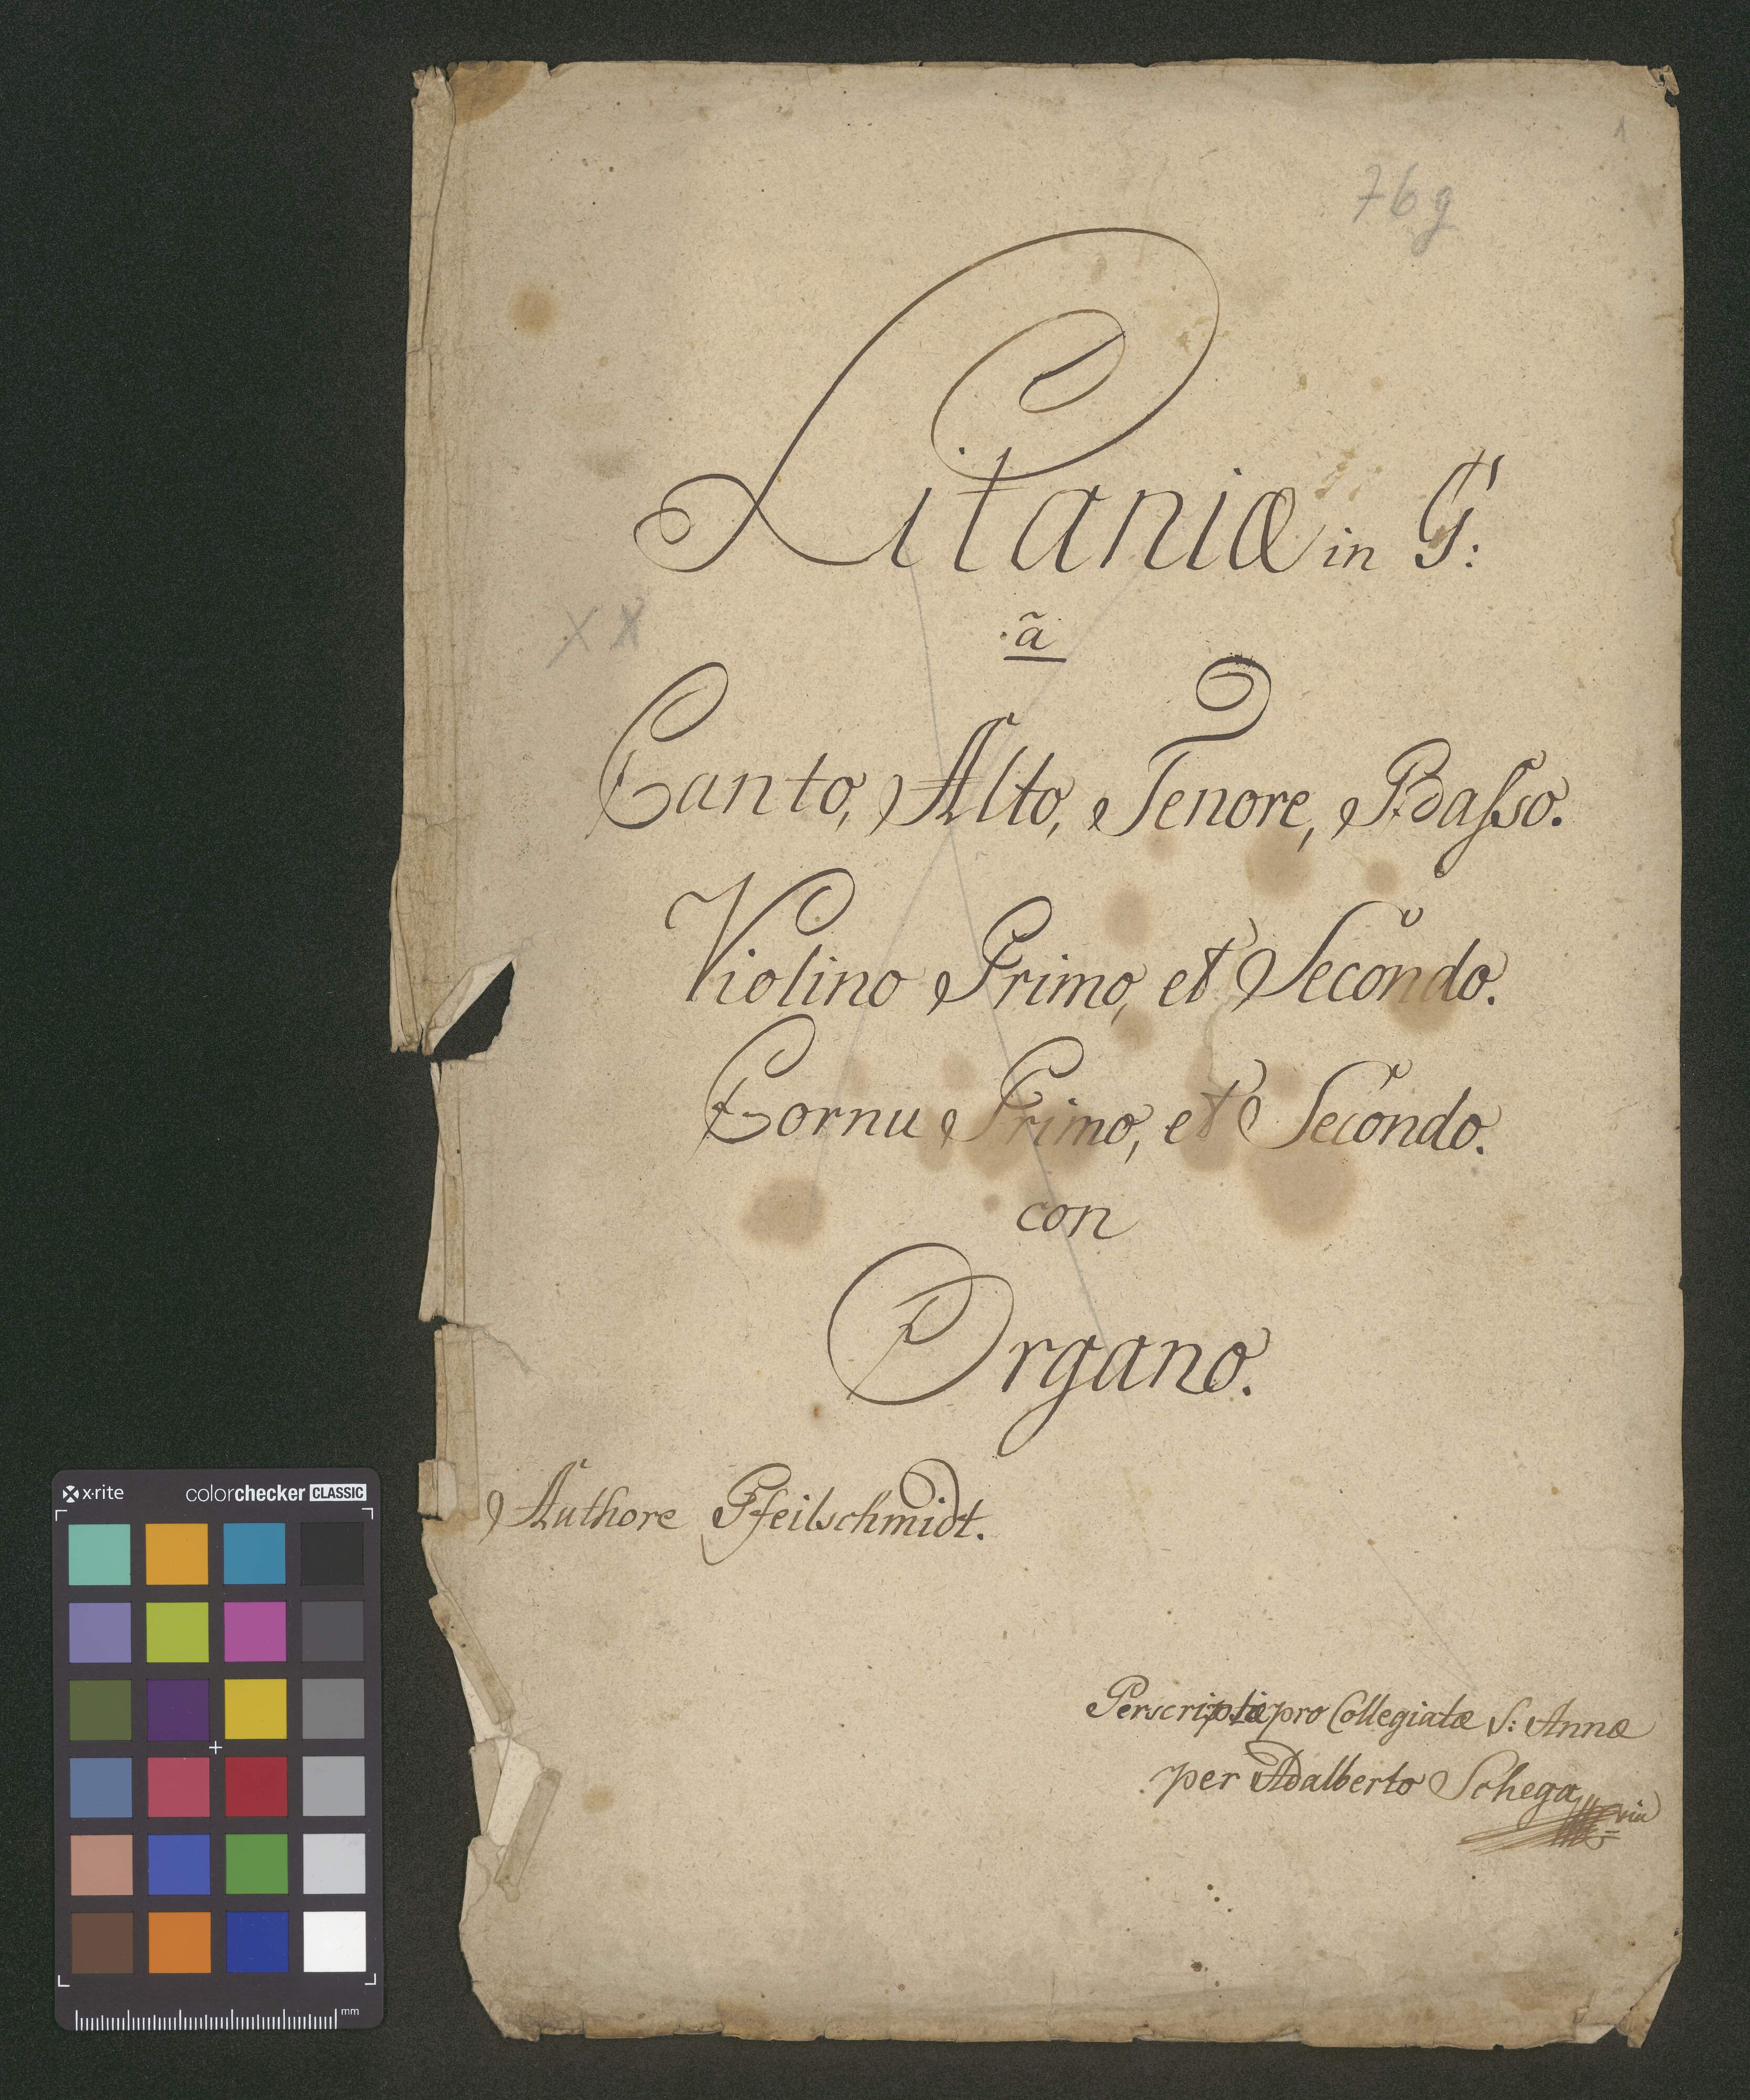 1
76g
Litaniæ in G:
ã
X X
Canto, Alto, Tenore, Basso.
Violino Primo, et Secondo.
Cornu Primo, et Secondo.
con
Organo.
Authore Pfeilschmidt.
Perscriptæ pro Collegiatæ S: Annæ
per Adalberto Schega
x·rite colorchecker CLASSIC
mm